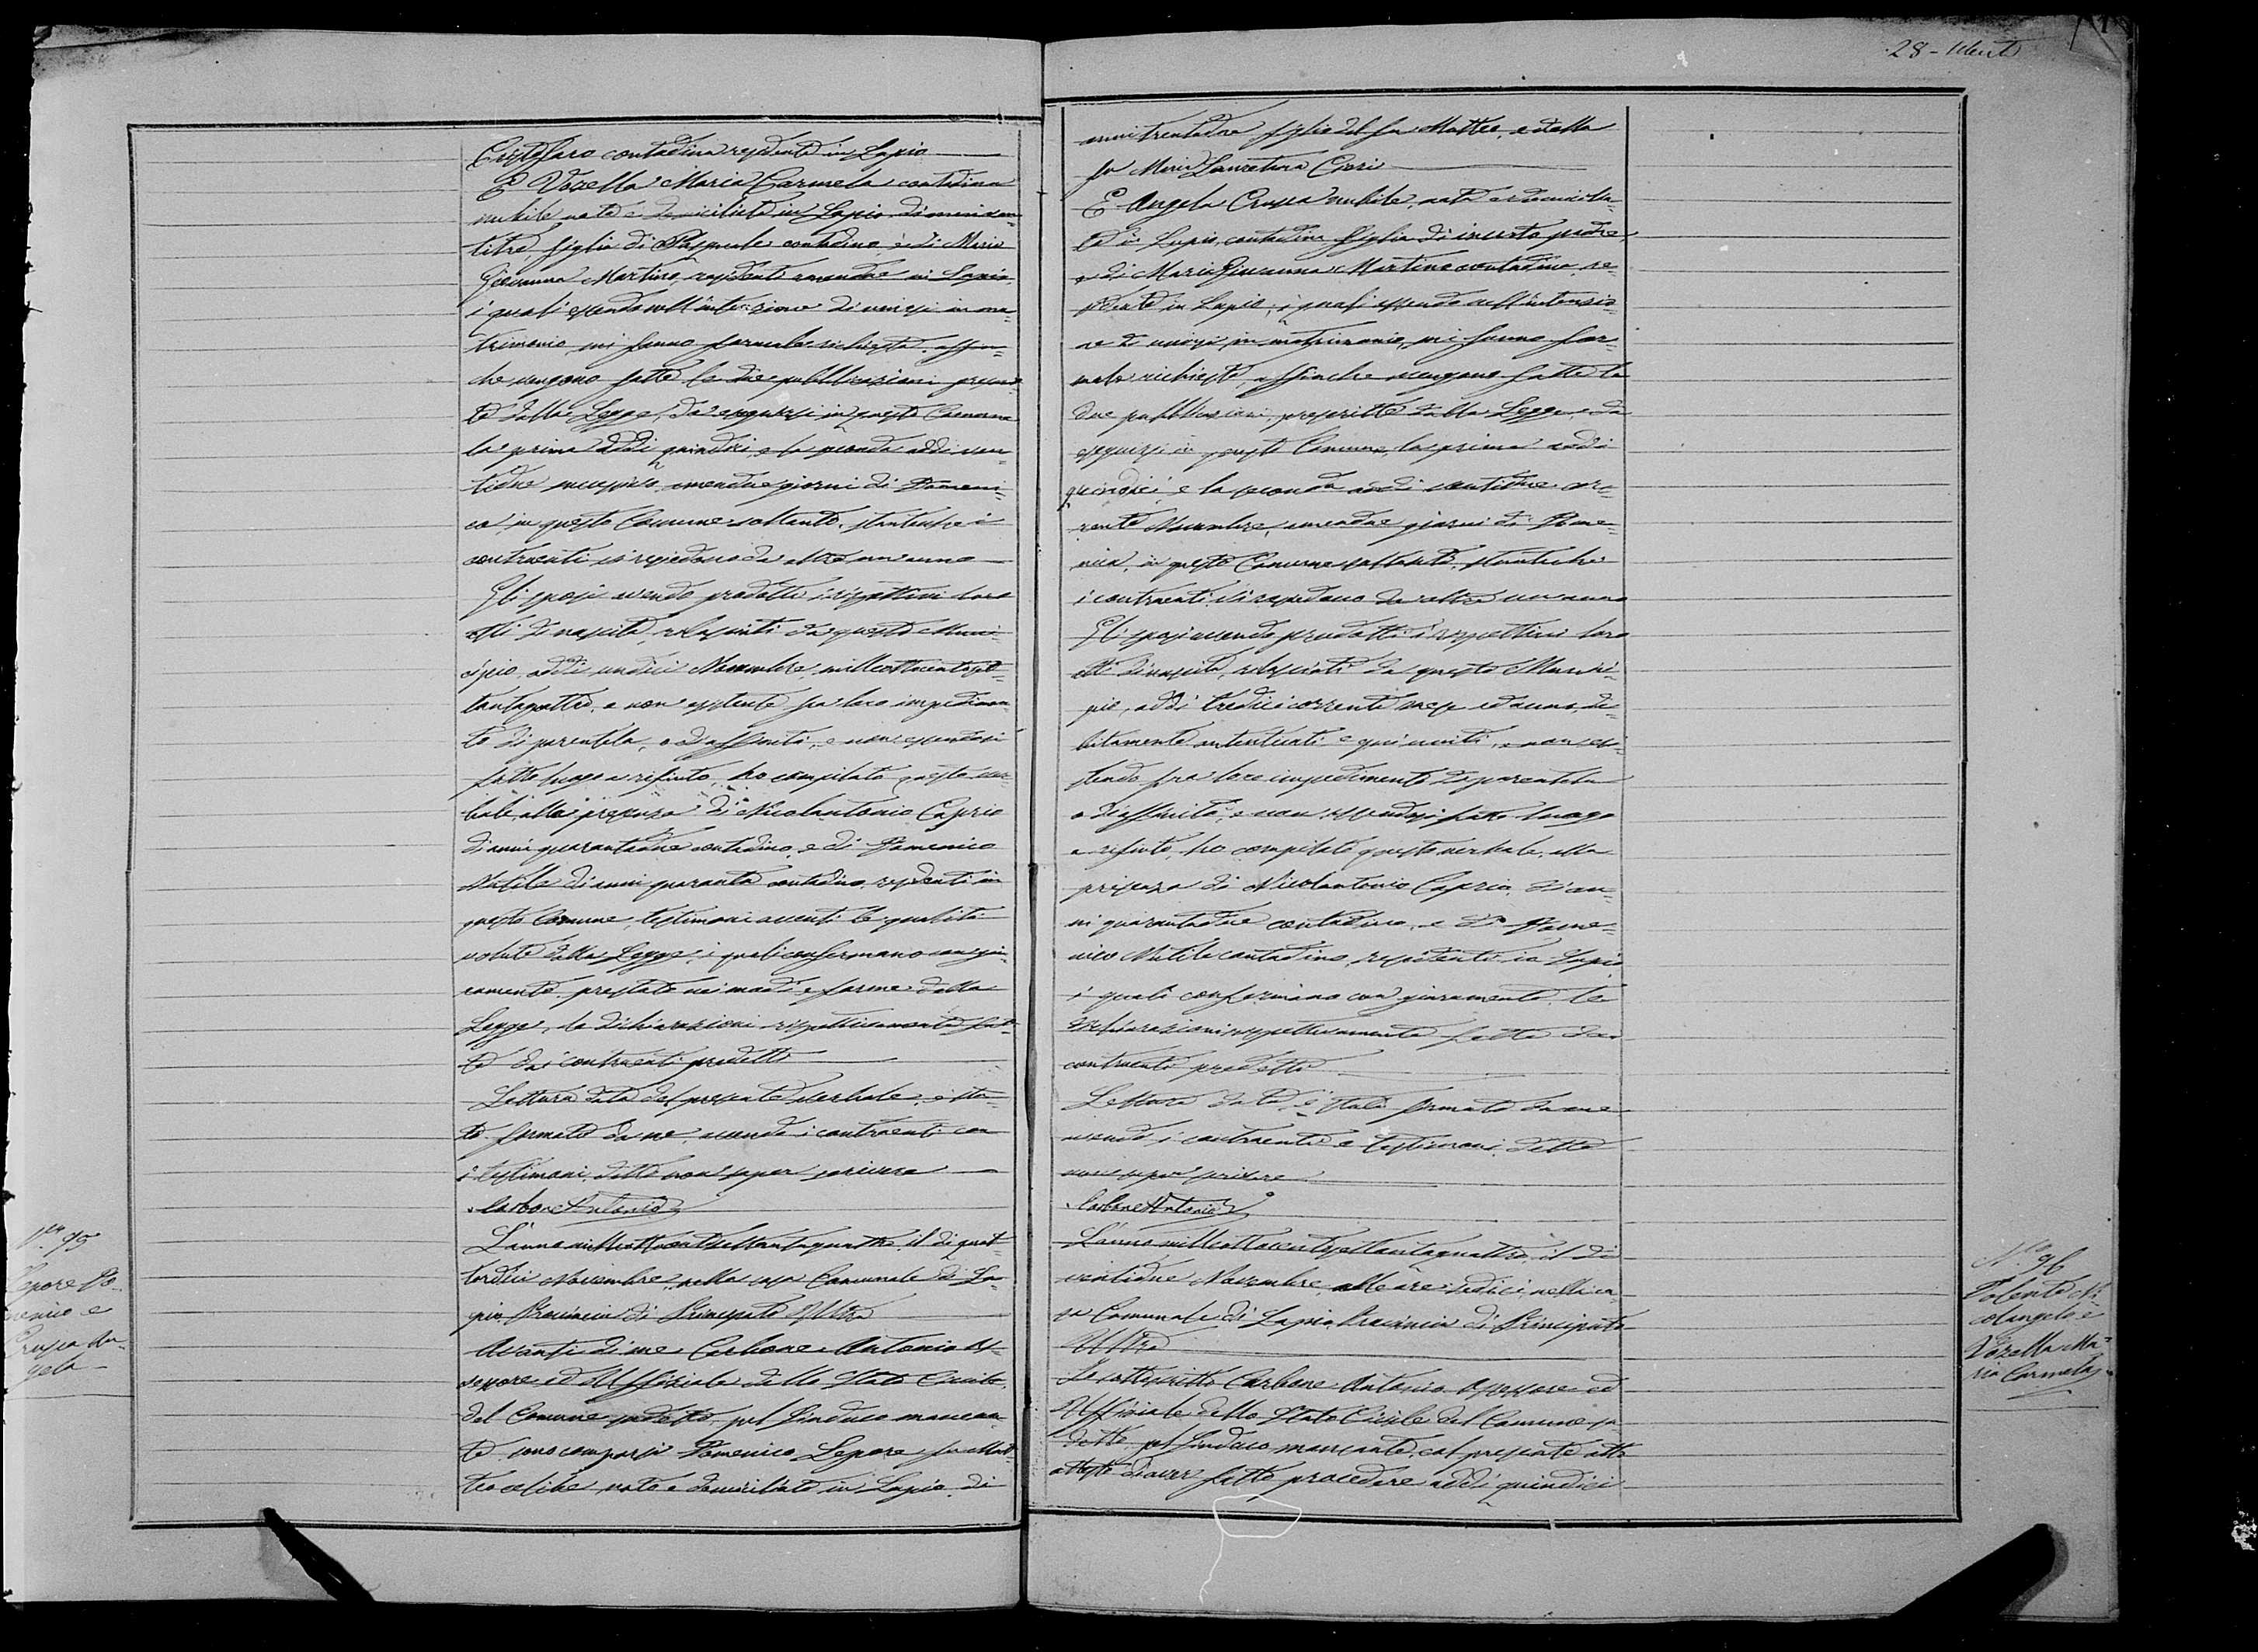 Cristofaro contadina residente in Lapio
E Vozella Maria Carmela contadina
nubile nata e domiciliata in Lapio di anni ven=
titre, figlia di Pasquale contadino, e di Maria
Giovanna Martino, residenti amendue in Lapio,
i quali essendo nell'intenzione di unirsi in ma=
trimonio, mi fanno formale richiesta affin=
che vengano fatte le due pubblicazioni prescrit
te dalla Legge, da eseguirsi in questo Comune
la prima addi quindici, e la seconda addi ven
tidue amendue giorni di Domeni=
ca, in questo Comune soltanto, stanteche i
contraenti vi risiedono da oltre un anno
Gli sposi avendo prodotti i rispettivi loro
atti di nascita, rilasciati da questo Muni=
cipio, addi undici Novembre milleottocentoset=
tantaquattro, e non esistente fra loro impedimen=
to di parentela, o di affinità, e non essendosi
fatto luogo a rifiuto, ho compilato questo ver=
bale, alla presenza di Nicolantonio Caprio
di anni quarantadue contadino, e di Domenico
Natile di anni quaranta contadino, residenti in
questo Comune, testimoni aventi le qualità
volute dalla Legge, i quali confermano con giu=
ramento prestato nei modi e forme della
Legge, le dichiarazioni rispettivamente fat=
te dai contraenti predetti
Lettura data del presente verbale, è sta=
to firmato da me, avendo i contraenti con
i testimoni detto non saper scrivere
Carbone Antonio
N.º 95
Lepore Do=
menico e
Crussa An=
gela
L'anno milleottocentosettantaquattro, il di quat=
tordici Novembre, nella casa Comunale di La=
pio, Provincia di Principato Ultra
Avanti di me Carbone Antonio As=
sessore ed Uffiziale dello Stato Civile
del Comune sudetto, pel Sindaco mancan=
te sono comparsi Domenico Lepore fu Mat=
teo celibe, nato e domiciliato in Lapio, di
28 -
anni trentadue figlio del fu Matteo, e della
fu Maria Lauretana
E Angela Crussa nubile, nata e domicilia=
ta in Lapio, contadina figlia di incerto padre,
e di Maria Giovanna Martino contadina, re=
sidente in Lapio; i quali essendo nell'intenzio=
ne di unirsi in matrimonio, mi fanno for=
male richiesta, affinche vengano fatte le
due pubblicazioni, prescritte dalla Legge, da
eseguirsi in questo Comune, la prima addi
quindici, e la seconda addi ventidue cor=
rente Novembre, amendue giorni di Dome=
nica, in questo Comune soltanto, stanteche
i contraenti vi risiedono da oltre un anno
Gli sposi avendo prodotti i rispettivi loro
atti di nascita, rilasciati da questo Munici=
pio, addi tredici corrente mese ed anno, de=
bitamente autenticati e qui uniti, e non esi=
stendo fra loro impedimento di parentela
o di affinità, e non essendosi fatto luogo
a rifiuto, ho compilato questo verbale, alla
presenza di Nicolantonio Caprio, di an=
ni quarantadue contadino, e di Dome=
nico Natile contadino, residenti in Lapio
i quali confermano con giuramento, le
dichiarazioni rispettivamente fatte dai
contraenti predetti
Lettura data, è stato firmato da me
avendo i contraenti e testimoni detto
non saper scrivere
Carbone Antonio
N.º 96
Volente Ni=
colangelo e
Vozella Ma=
ria Carmela
L'anno milleottocentosettantaquattro, il di
ventidue Novembre, alle ore sedici, nella ca=
sa Comunale di Lapio, Provincia di Principato
Ultra
Io sottoscritto Carbone Antonio Assessore ed
Uffiziale dello Stato Civile del Comune su=
detto, pel Sindaco mancante, col presente atto
attesto di aver fatto procedere addi quindici